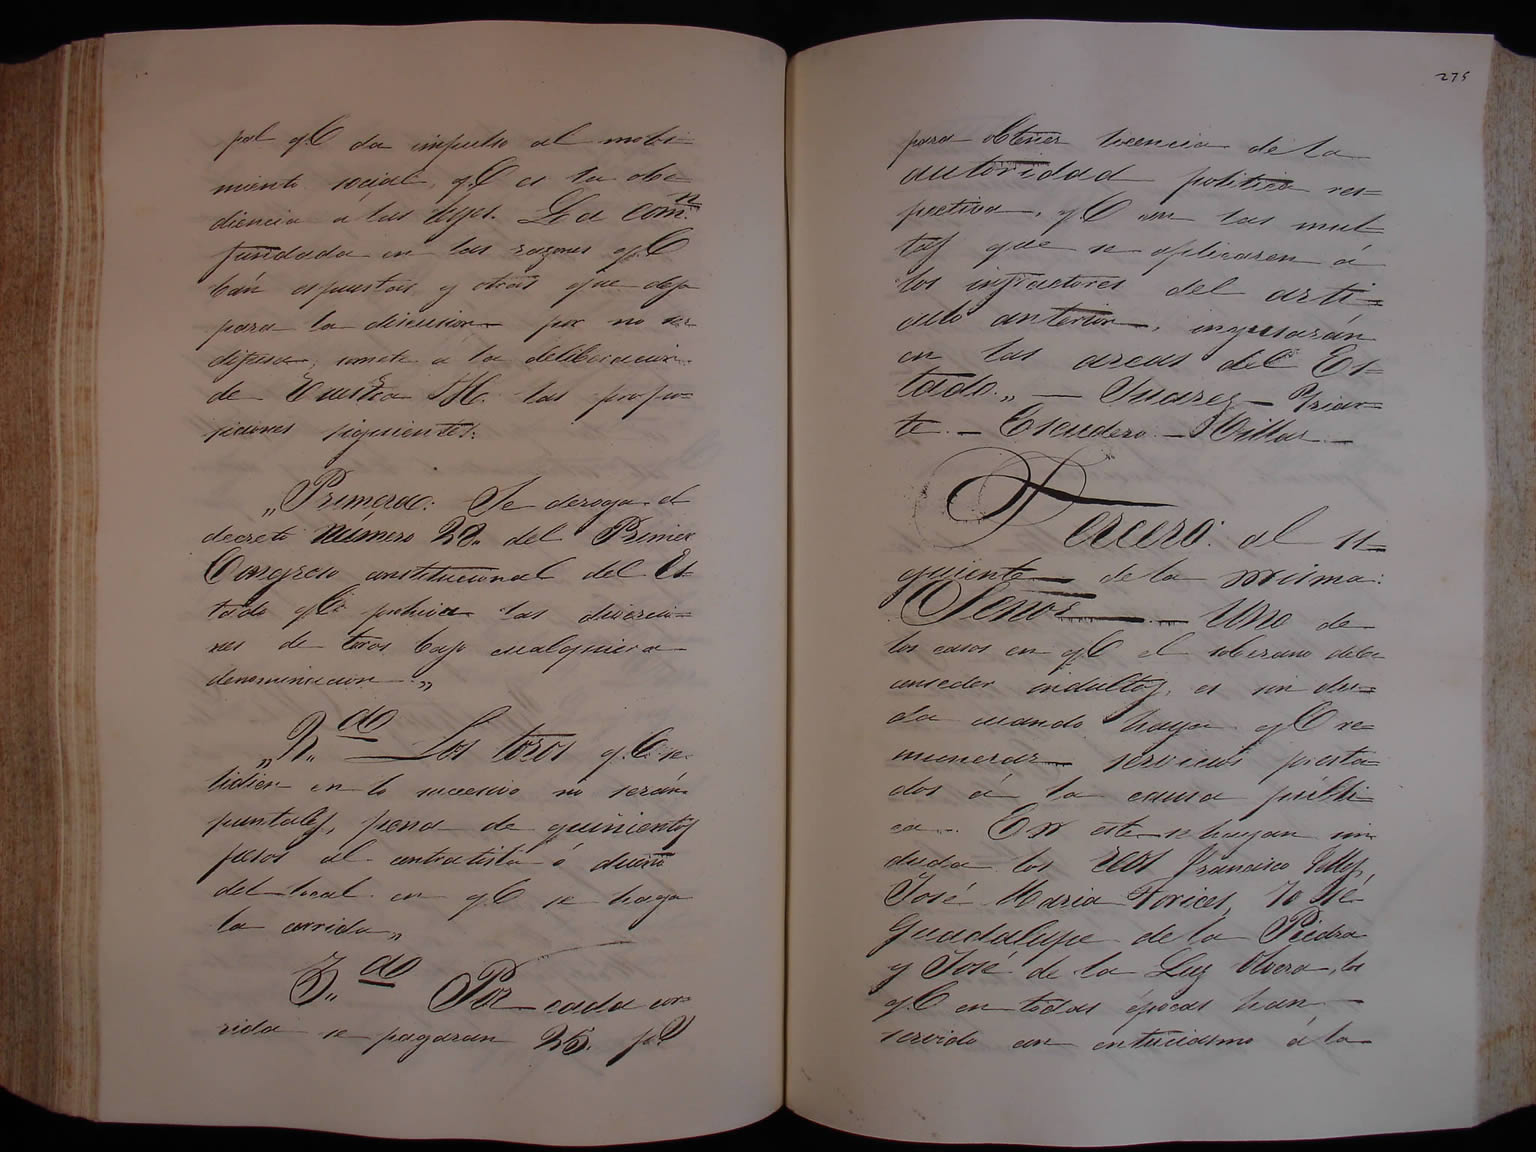 pal q.e da impulso al mobi-
miento social, q.e es la obe-
diencia a las leyes. La com.n
fundada en las razones q.e
bán espuestas y otras que deja
para la discusion por no ser
difusa, somete á la deliberacion
de Vuestra H. las propo-
siciones siguientes.
„Primera: Se deroga el
decreto número 20. del Primer
Congreso constitucional del Es-
tado q.e prohive las divercio-
nes de toros bajo cualquiera
denominacion.„
„2.da Los toros q.e se
lidien en lo sucesivo no serán
puntales, pena de quinientos
pesos al contratista ó dueño
del local en q.e se haga
la corrida„
3.da Por cada cor-
rida se pagaran 25. p.s
275
para obtener licencia de la
autoridad politica res-
pectiva, q.e con las mul-
tas que se aplicaren á
los infractores del arti-
culo anterior, ingresarán
en las arcas del Es-
tado.„ — Suarez — Yriar-
te. — Escudero. — Villar —
Tercero: al si-
guiente de la misma:
Señor — Uno de
los casos en q.e el soberano debe
conseder indultos, es sin du-
da cuando haya q.e re-
munerar servicios presta-
dos á la causa públi-
ca. En este se hayan sin
duda los reos Francisco
José Maria Torices, José
Guadalupe de la Piedra
y José de la Luz Olvera, los
q.e en todas épocas han
servido con entuciasmo á la